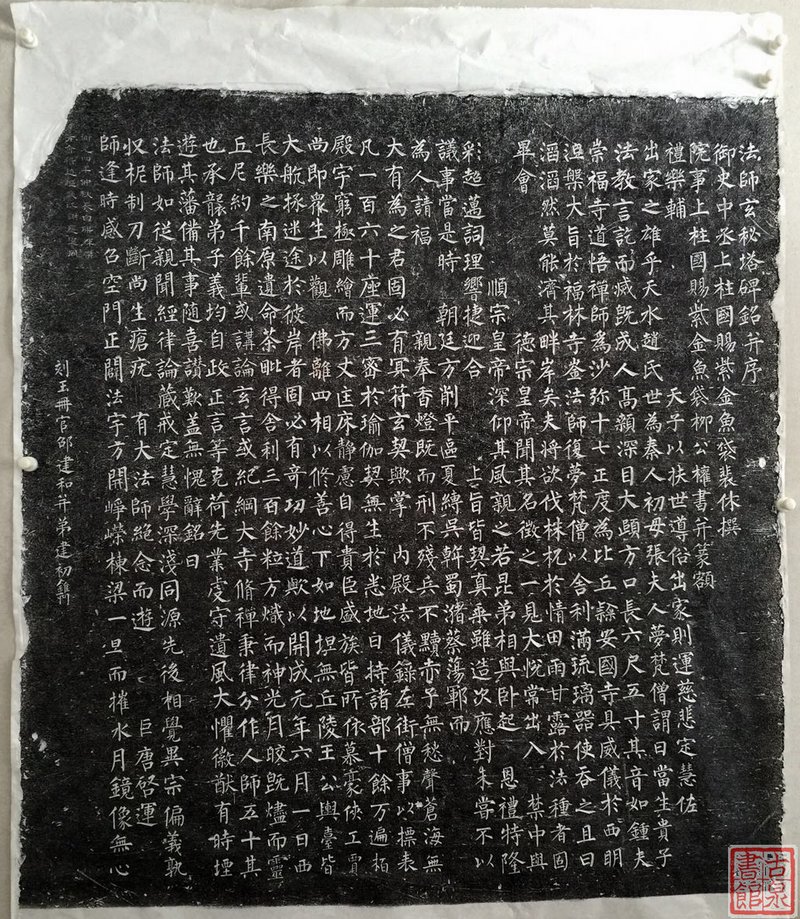 法師玄秘塔碑銘并序
御史中丞上柱國賜紫金魚袋裴休撰
院事上柱國賜紫金魚袋柳公權書并篆額
禮樂輔 天子以扶世導俗出家則運慈悲定慧佐
出家之雄乎天水趙氏世為秦人初母張夫人夢梵僧謂曰當生貴子
法教言訖而滅既成人高顙深目大頤方口長六尺五寸其音如鍾夫
崇福寺道悟禪師為沙弥十七正度為比丘隸安國寺具威儀於西明
涅槃大旨於福林寺崟法師復夢梵僧以舍利滿琉璃器使吞之且曰
滔滔然莫能濟其畔岸矣夫將欲伐株杌於情田雨甘露於法種者固
畢會 德宗皇帝聞其名徵之一見大悅常出入 禁中與
順宗皇帝深仰其風親之若昆弟相與卧起 恩禮特隆
彩超邁詞理響捷迎合 上旨皆契真乘雖造次應對未嘗不以
議事當是時 朝廷方削平區夏縛吳斡蜀瀦蔡蕩鄆而
為人請福 親奉香燈既而刑不殘兵不黷赤子無愁聲蒼海無
大有為之君固必有冥符玄契歟掌 內殿法儀錄左街僧事以標表
凡一百六十座運三密於瑜伽契無生於悉地日持諸部十餘万遍栢
殿宇窮極雕繪而方丈匡床靜慮自得貴臣盛族皆所依慕豪俠工賈
尚即衆生以觀 佛離四相以修善心下如地坦無丘陵王公輿臺皆
大航拯迷途於彼岸者固必有奇功妙道歟以開成元年六月一日西
長樂之南原遺命荼毗得舍利三百餘粒方熾而神光月皎既燼而靈
丘尼約千餘輩或講論玄言或紀綱大寺脩禪秉律分作人師五十其
也承襲弟子義均自政正言等克荷先業虔守遺風大懼徽猷有時堙
遊其藩備其事隨喜讚歎蓋無愧辭銘曰
法師如從親聞經律論藏戒定慧學深淺同源先後相覺異宗偏義孰
収柅制刀斷尚生瘡疣 有大法師絕念而遊 巨唐啓運
師逢時感召空門正闢法宇方開崢嶸棟梁一旦而摧水月鏡像無心
刻玉冊官邵建和并弟建初鐫
古泉書館